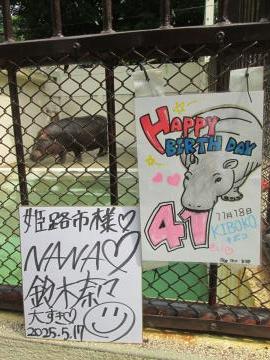 姫路市様♡
NANA♡
鈴木奈々
大すき♡
2025.5.17
HAPPY
BIRTH DAY
41
11月18日
KIBOKO